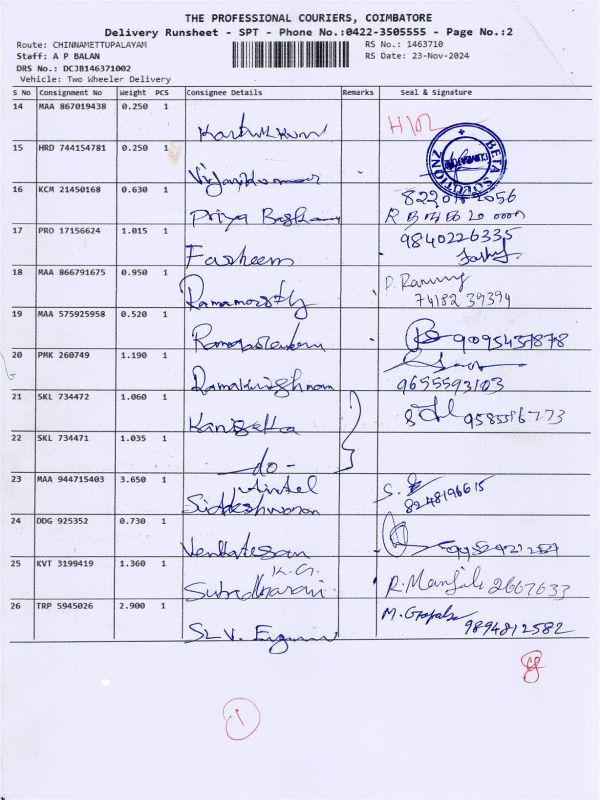 THE PROFESSIONAL COURIERS, COIMBATORE
Delivery Runsheet - SPT - Phone No.:0422-3505555 - Page No.:2
Route: CHINNAMETTUPALAYAM RS No.: 1463710
Staff: A P BALAN RS Date: 23-Nov-2024
DRS No.: DCJB146371002
Vehicle: Two Wheeler Delivery
S No Consignment No Weight PCS Consignee Details Remarks Seal & Signature
14 MAA 867019438 0.250 1
15 HRD 744154781 0.250 1 BETA SOLUTIONZ COIMBATORE
Vijayakumar
16 KCM 21450168 0.630 1
Priya
17 PRO 17156624 1.015 1 9840226335
Fasheem
18 MAA 866791675 0.950 1
Ramamoorthy 74182 39394
19 MAA 575925958 0.520 1
9095437878
20 PMK 260749 1.190 1
Ramakrishnan 9655593103
21 SKL 734472 1.060 1
22 SKL 734471 1.035 1
- do -
23 MAA 944715403 3.650 1
Siddeshwaran 8248196615
24 DDG 925352 0.730 1
Venkatesan
K.G.
25 KVT 3199419 1.360 1
2667633
26 TRP 5945026 2.900 1 M. Gopal
SLV. 9894812582
1